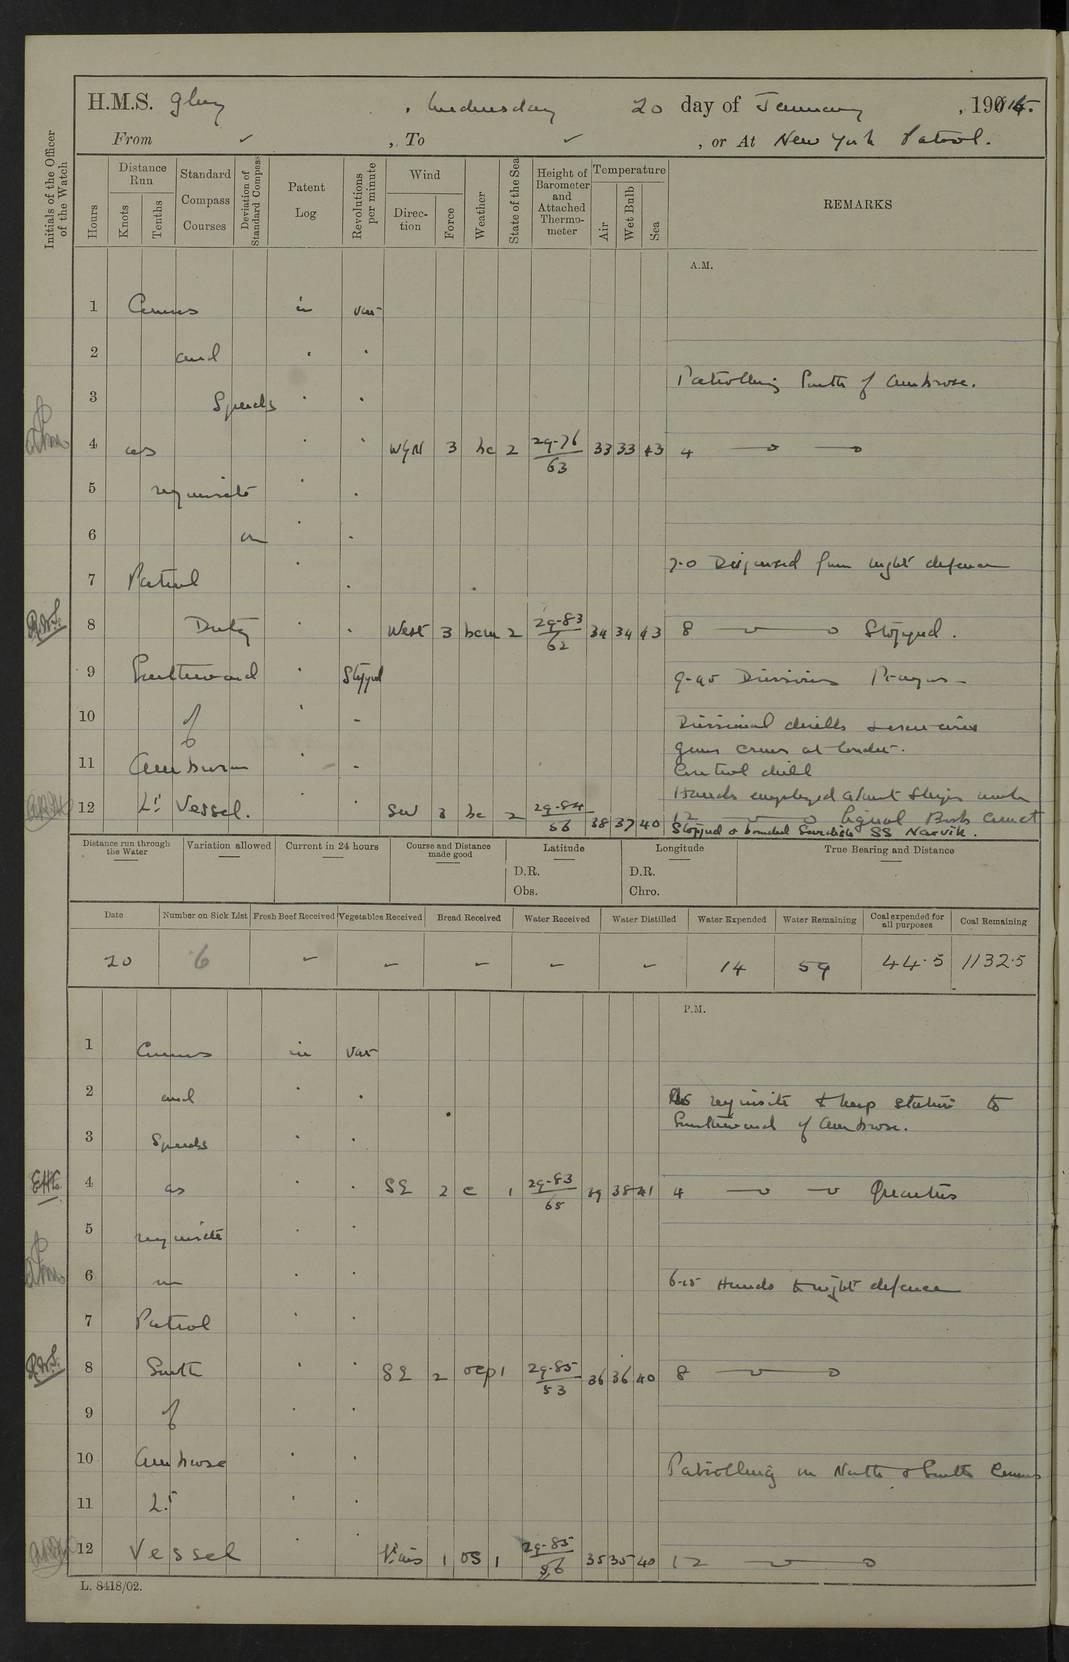 H.M.S. Glory, Wednesday 20 day of January, 1915.
From ✓, To ✓, or At New York Patrol.
Initials of the Officer of the Watch
Hours
Distance Run
Knots
Tenths
Standard Compass Courses
Deviation of Standard Compass
Patent Log
Revolutions per minute
Wind
Direction
Force
Weather
State of the Sea
Height of Barometer and Attached Thermometer
Temperature
Air
Wet Bulb
Sea
REMARKS
A.M.
1 Courses in var
2 and
Patrolling South of Ambrose.
3 Speeds
4 as WGN 3 bc 2 29.76/63 33 33 43 4
5 requisite
6 on
7.0 Dispersed from night defence
7 Patrol
8 Duty West 3 bcm 2 29.83/62 34 34 43 8 Stopped.
9 Southward Stopped 9.40 Divisions Prayers
10 of Divisional drills & exercised
guns crews at loader.
11 Ambrose Control drill
Hands employed about ships work
12 Lt Vessel. SW 3 bc 2 29.84/56 38 37 40 12 Signal Books Correct
Stopped & boarded Swedish SS Narvik.
Distance run through the Water
Variation allowed
Current in 24 hours
Course and Distance made good
Latitude
D.R.
Obs.
Longitude
D.R.
Chro.
True Bearing and Distance
Date Number on Sick List Fresh Beef Received Vegetables Received Bread Received Water Received Water Distilled Water Expended Water Remaining Coal expended for all purposes Coal Remaining
20 6 – – – – – 14 59 44.5 1132.5
P.M.
1 Courses in var
2 and As requisite & keep station to
Southward of Ambrose.
3 Speeds
4 as SE 2 c 1 29.83/65 39 38 41 4 Quarters
5 requisite
6 on 6.15 Hands to night defence
7 Patrol
8 South SE 2 ocp 1 29.85/53 36 36 40 8
9 of
10 Ambrose Patrolling on North & South Courses
11 Lt
12 Vessel 1 os 1 29.85/56 35 35 40 12
L. 8418/02.